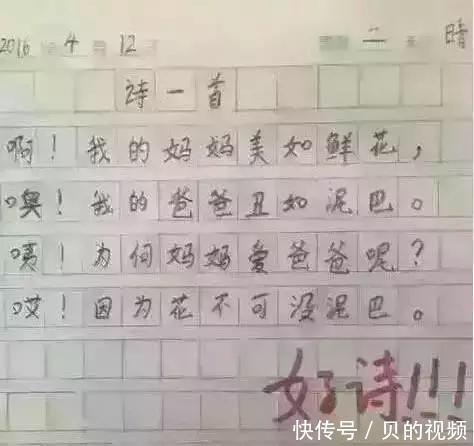 2016 4 12 二 晴
诗一首
啊！我的妈妈美如鲜花，
噢！我的爸爸丑如泥巴。
咦！为何妈妈爱爸爸呢？
哎！因为花不可没泥巴。
好诗!!!
快传号／贝的视频